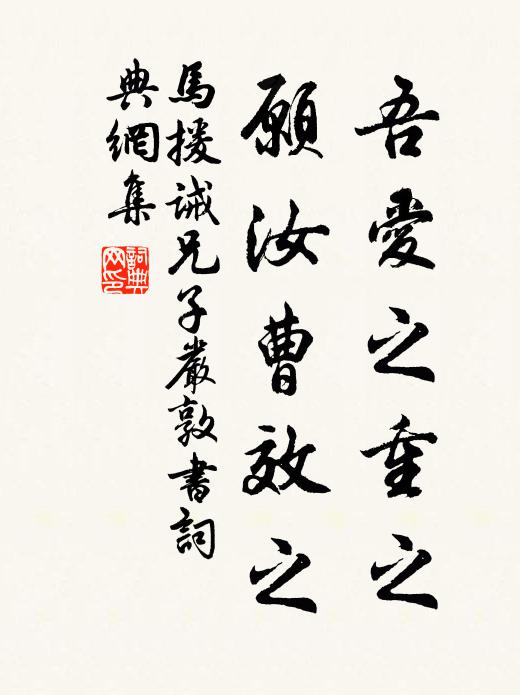 吾愛之重之
願汝曹效之
馬援誡兄子嚴敦書詞
典網集
詞典
网印